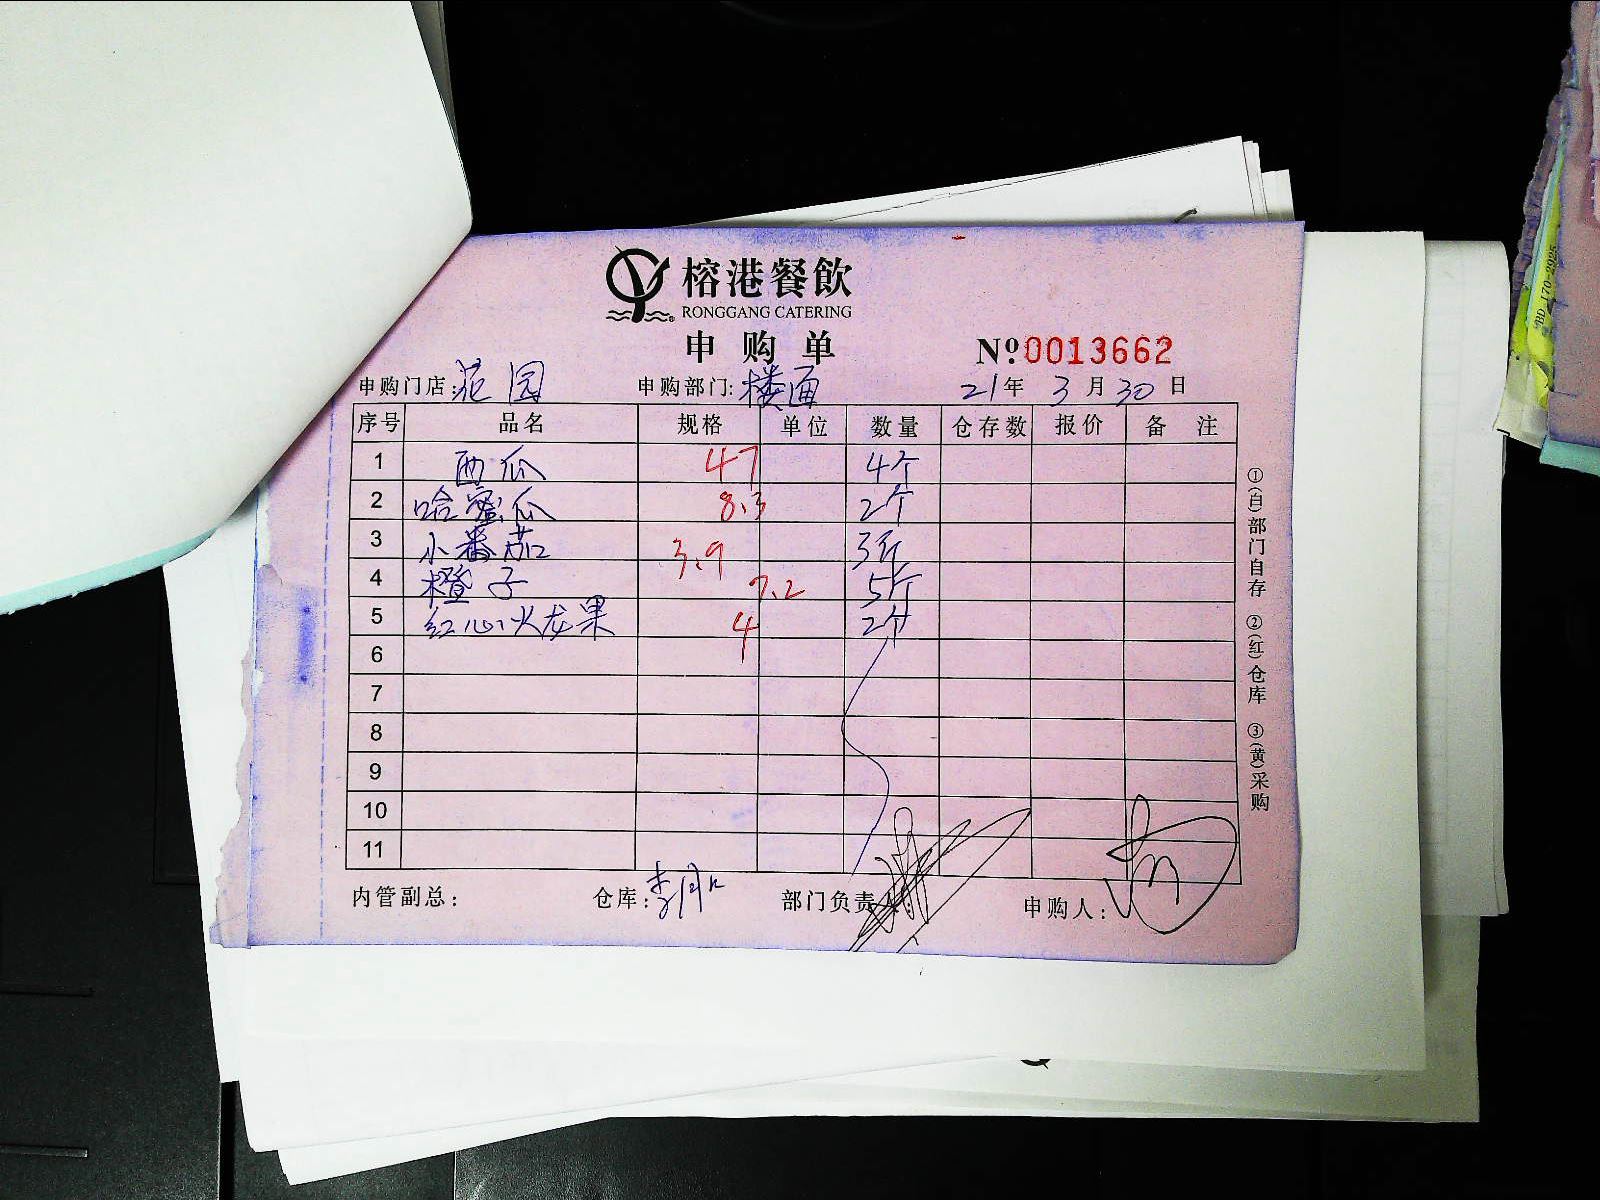 榕港餐飲
RONGGANG CATERING
申购单
Nº 0013662
申购门店: 范园 申购部门: 楼面 21年 3月 30日
序号 品名 规格 单位 数量 仓存数 报价 备注
1 西瓜 47 4个
2 哈蜜瓜 8.3 2个
3 小番茄 3.9 3斤
4 橙子 7.2 5斤
5 红心火龙果 4 2个
6
7
8
9
10
11
内管副总: 仓库: 部门负责人: 申购人:
①(白)部门自存 ②(红)仓库 ③(黄)采购
BD-170-2925